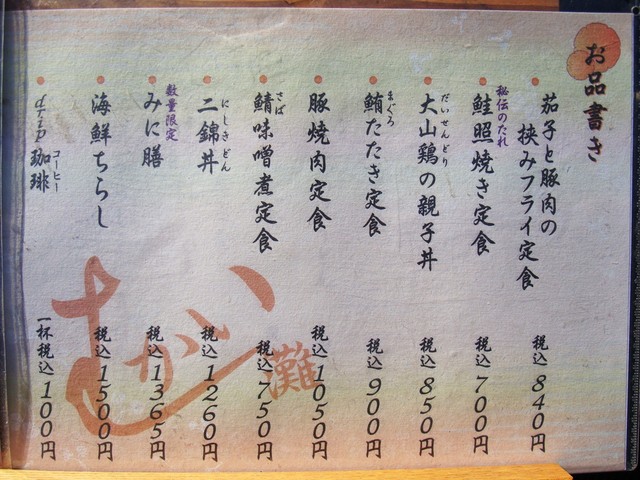 お品書き
茄子と豚肉の
挟みフライ定食
税込840円
秘伝のたれ
鮭照焼き定食
税込700円
だいせんどり
大山鶏の親子丼
税込850円
まぐろ
鮪たたき定食
税込900円
豚焼肉定食
税込1050円
さば
鯖味噌煮定食
税込750円
にしきどん
二錦丼
税込1260円
数量限定
みに膳
税込1365円
海鮮ちらし
税込1500円
コーヒー
drip珈琲
一杯税込100円
むかい
灘